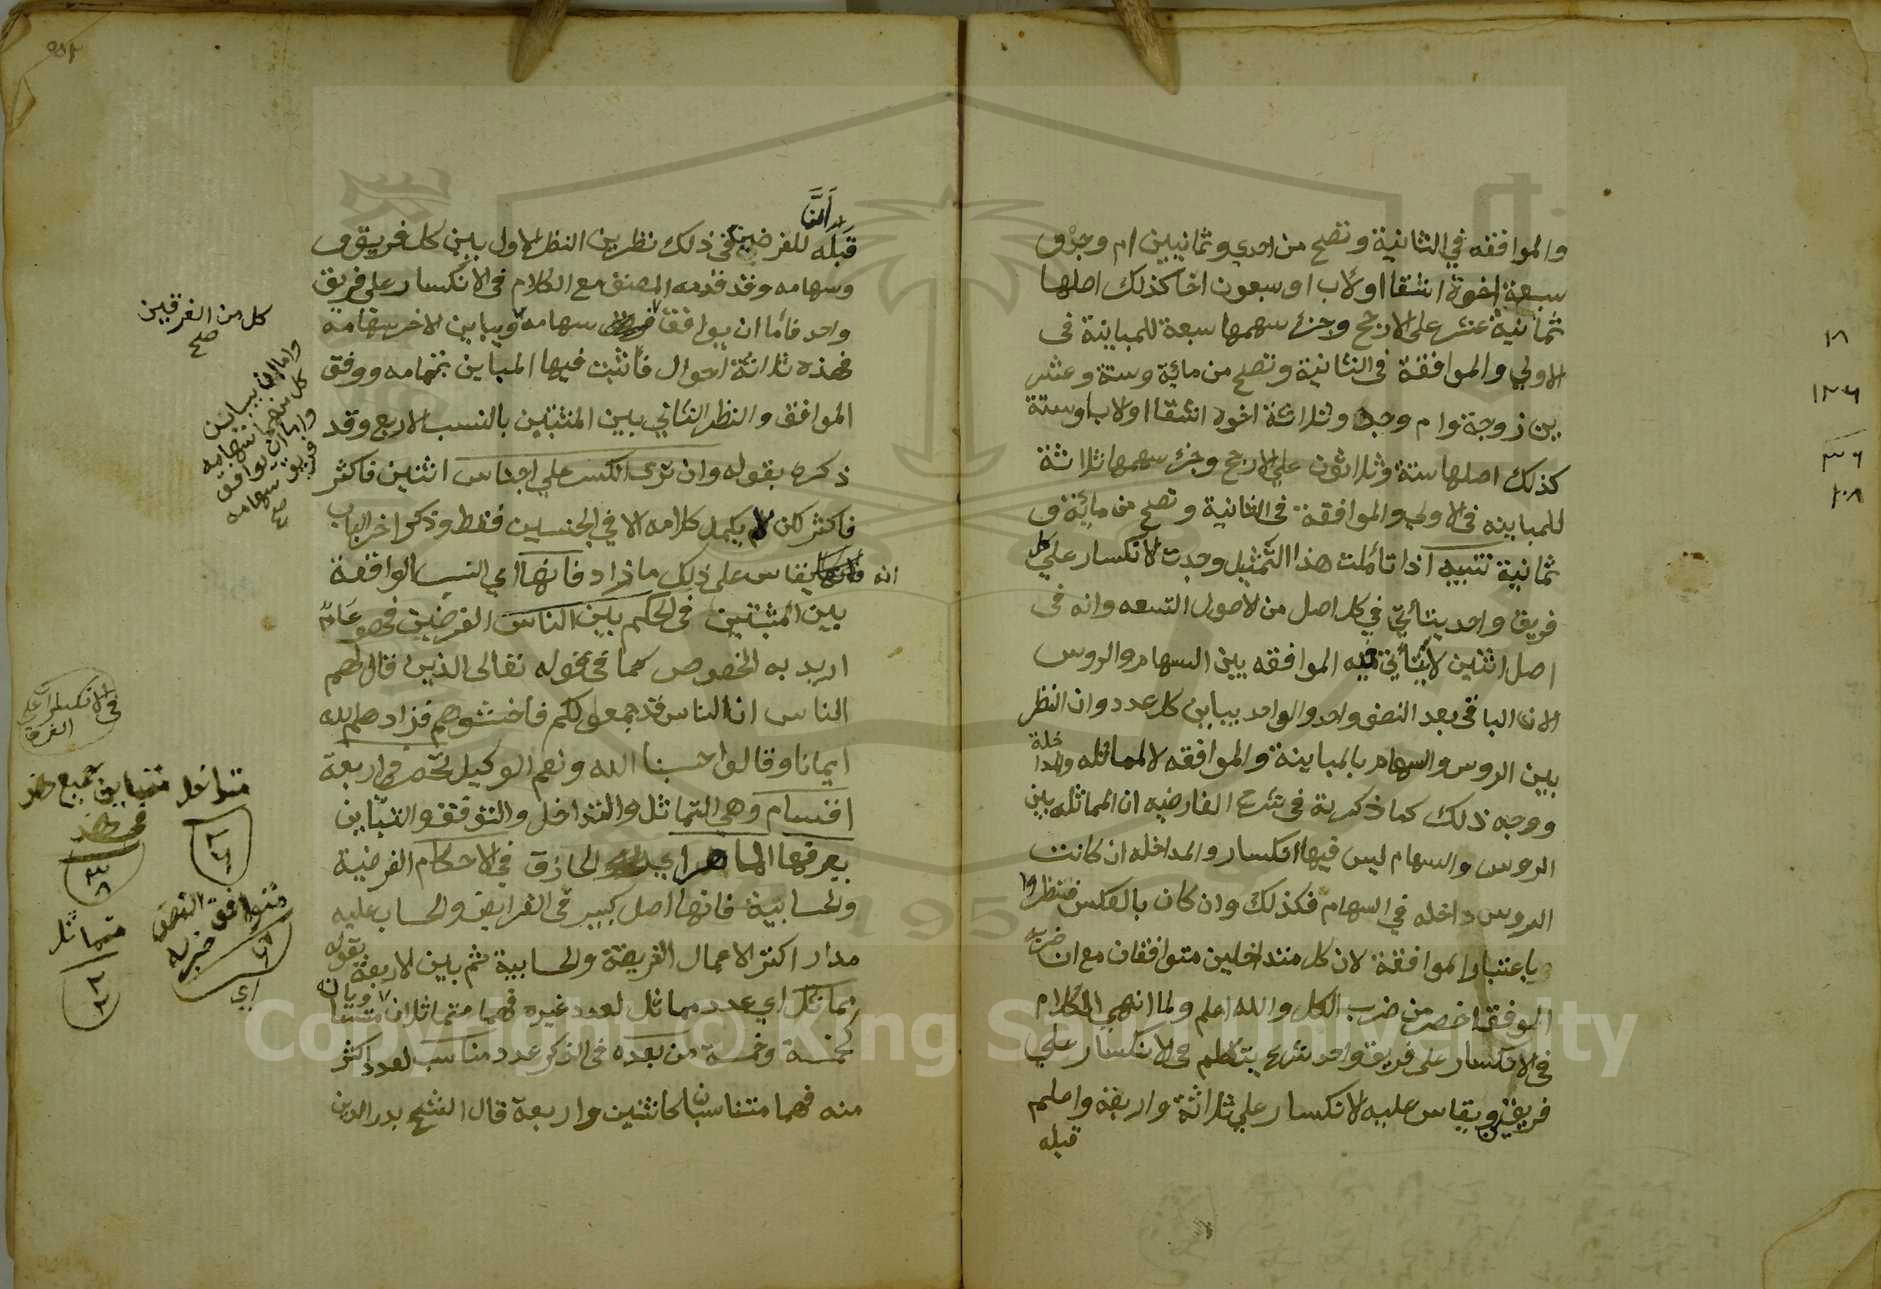 والموافقه في الثانية وتصح من احدي وثمانيين ام وجد و
سبعة اخوة اشقا او لاب او سبعون اخا كذلك اصلها
ثمانية عشر علي الارجح وجزء سهمها سبعة للمباينة في
الاولي والموافقة في الثانية وتصح من مائة وستة وعشر
ين زوجة وام وجد وثلاثة اخوه اشقا او لاب او ستة
كذلك اصلها ستة وثلاثون علي الارجح وجزء سهمها ثلاثة
للمباينه في الاولي والموافقة في الثانية وتصح من مائة و
ثمانية تنبيه اذا تأملت هذا التمثيل وجدت الانكسار علي كل
فريق واحد يتأتي في كل اصل من الاصول التسعه وانه في
اصل اثنين لا يتأتي فيه الموافقه بين السهام والروس
الان الباقي بعد النصف واحد والواحد يباين كل عدد وان النظر
بين الروس والسهام بالمباينة والموافقه لا المماثله والمدا
خلة
ووجه ذلك كما ذكرته في شرح الفارضيه ان المماثله بين
الروس والسهام ليس فيها انكسار والمداخله ان كانت
الروس داخله في السهام فكذلك وان كان بالعكس فنظروا
باعتبار الموافقة لان كل متداخلين متوافقان مع ان ضرب
الوفق اخصر من ضرب الكل والله اعلم ولما انهي الكلام
في الانكسار علي فريق واحد شرع يتكلم في الانكسار علي
فريقين ويقاس عليه الانكسار علي ثلاثة واربعة واعلم
قبله
١٨
١٢٦
٣٦
١٠٨
أنَّ
قبله للفرضيين في ذلك نظرين النظر الاول بين كل فريق و
وسهامه وقد قدمه المصنف مع الكلام في الانكسار علي فريق
واحد فاما ان يوافق سهامه ويباين الاخر سهامه
فهذه ثلاثة احوال فأثبت فيها المباين بتمامه ووفق
الموافق والنظر الثاني بين المثبتين بالنسب الاربع وقد
ذكره بقوله وان تري الكسر علي اجناس اثنين فاكثر
فاكثر لكن لم يكمل كلامه الا في الجنسين فقط وذكر اخر الباب
انه يقاس علي ذلك ما زاد فانها اي النسب الواقعة
بين المثبتين في الحكم بين الناس الفرضين فهو عام
اريد به الخصوص كما في قوله تعالي الذين قال لهم
الناس ان الناس قد جمعوا لكم فاخشوهم فزادهم الله
ايمانا وقالوا حسبنا الله ونعم الوكيل تحصر في اربعة
اقسام وهي التماثل والتداخل والتوافق والتباين
يعرفها الماهر اي الحاذق في الاحكام الفرضية
والحسابية فانها اصل كبير في الفرايض والحساب عليه
مدار اكثر الاعمال الفريضة والحسابية ثم بين الاربعة بقوله
مماثل اي عدد مماثل لعدد غيره فهما متماثلان متساويان
كخمسة وخمسة من بعده في الذكر عدد مناسب لعدد اكثر
منه فهما متناسبان كاثنين واربعة قال الشيخ بدر الدين
كل من الفرقين
صح
واما ان يباين
كل منهما سهامه
واما ان يوافق
فريق سهامه
صح
في الانكسار علي
الفرق
متداخل
٢
٤
متباين جميع هذ
في هذ
٣
٨
متوافق النصف
ضربه
٤ ٦
اي
متماثل
٣
٣